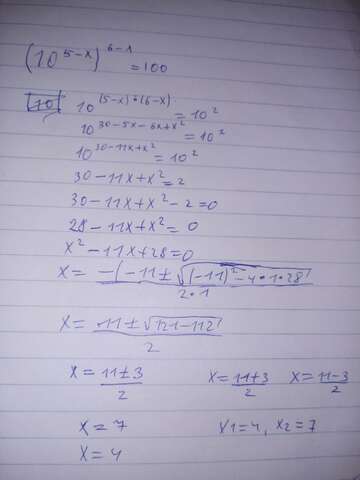 (10^(5-x))^(6-1) = 100
[10] 10^((5-x)•(6-x)) = 10^2
10^(30-5x-6x+x^2) = 10^2
10^(30-11x+x^2) = 10^2
30-11x+x^2=2
30-11x+x^2-2=0
28-11x+x^2=0
x^2-11x+28=0
x= -(-11±√((-11)^2-4•1•28) / 2•1
x= 11±√(121-112) / 2
x= 11±3 / 2 x= 11+3 / 2 x= 11-3 / 2
x=7 x1=4, x2=7
x=4